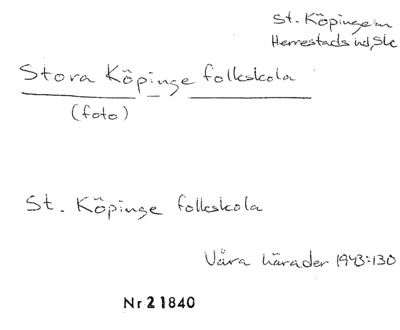 St. Köpinge sn
Herrestads hd, Sk
Stora Köpinge folkskola
(foto)
St. Köpinge folkskola
Våra härader 1943:130
Nr 21840